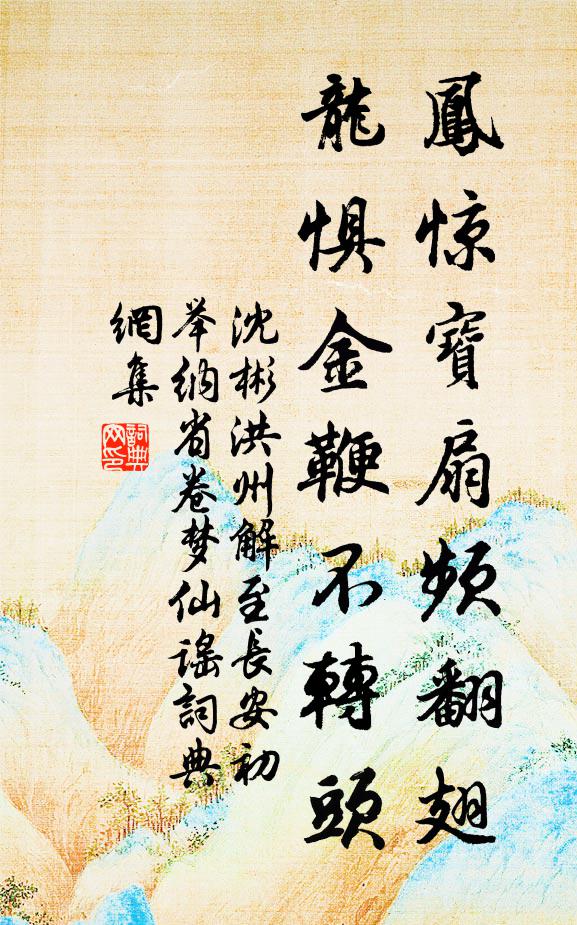 鳳惊寶扇頻翻翅
龍惧金鞭不轉頭
沈彬洪州解至長安初
举纳省卷梦仙謠詞典
網集
詞典
网印